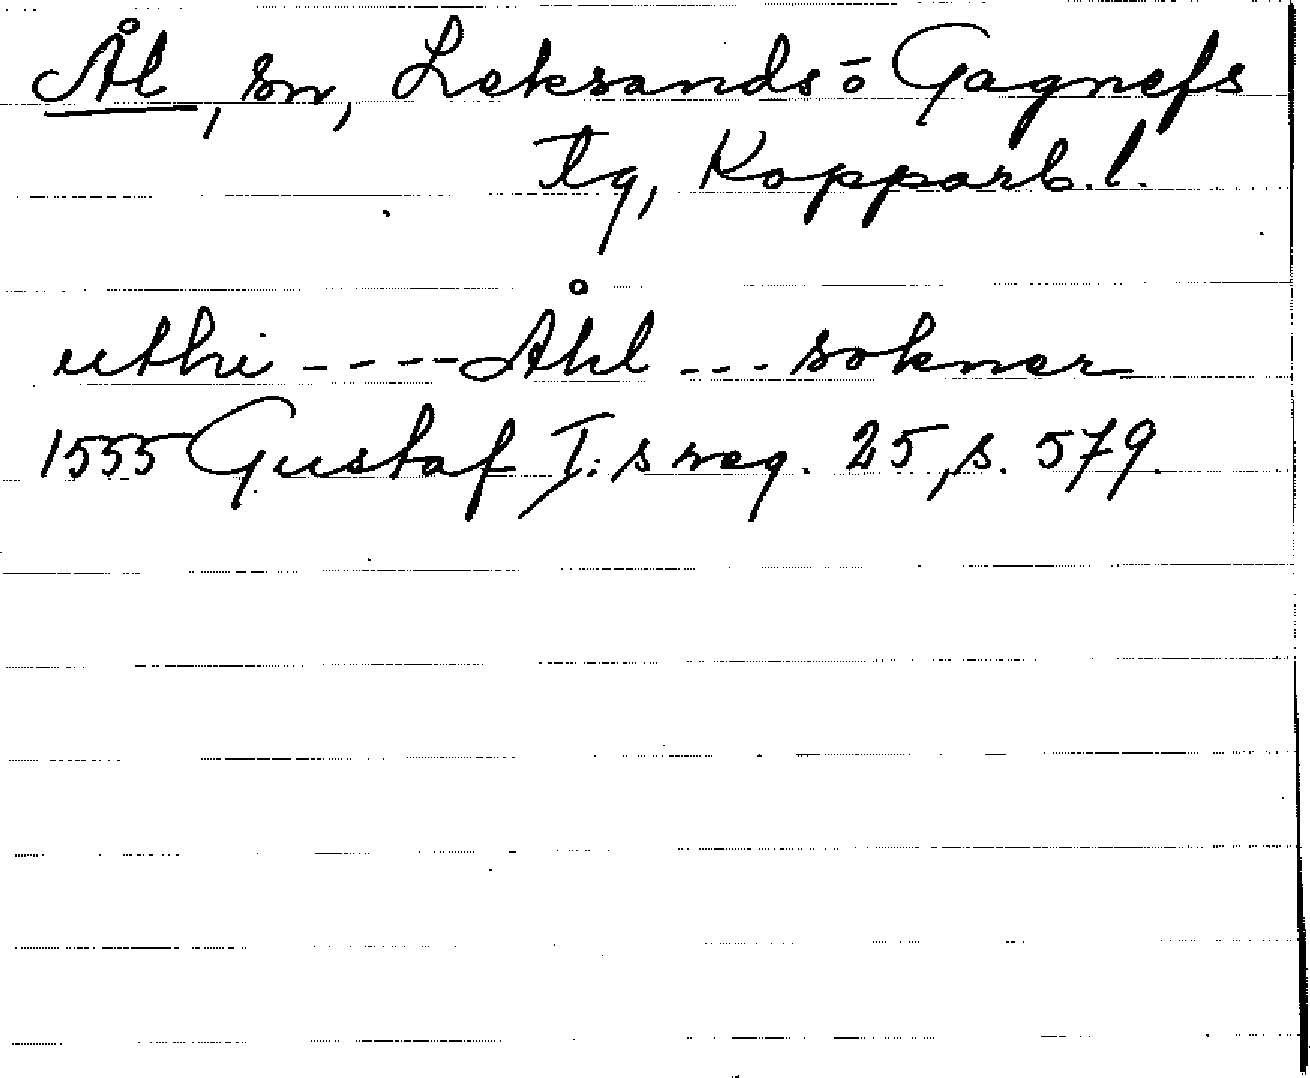 Ål, sn, Leksands- o Gagnefs
tg, Kopparb. l.
uthi ---- Åhl --- sokner
1555 Gustaf I:s reg. 25, s. 579.